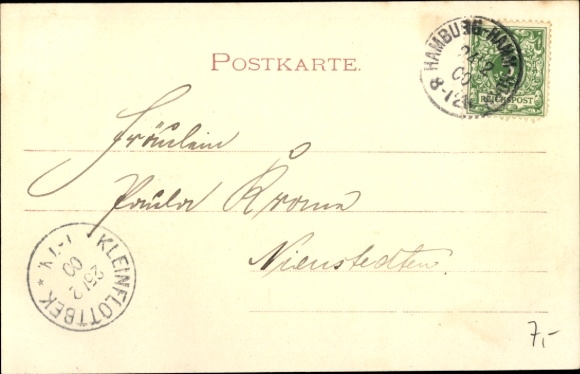 POSTKARTE.
HAMBURG-HAMM-
24/2
00
8-12
REICHSPOST
Fräulein
Paula Krome
Nienstedten.
KLEINFLOTTBEK *
25/2
00
7,-